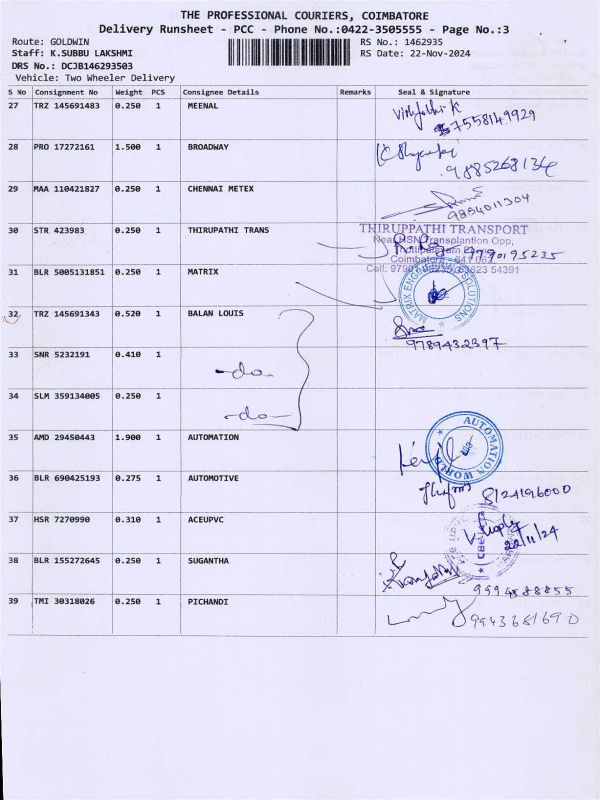 THE PROFESSIONAL COURIERS, COIMBATORE
Delivery Runsheet - PCC - Phone No.:0422-3505555 - Page No.:3
Route: GOLDWIN RS No.: 1462935
Staff: K.SUBBU LAKSHMI RS Date: 22-Nov-2024
DRS No.: DCJB146293503
Vehicle: Two Wheeler Delivery
S No Consignment No Weight PCS Consignee Details Remarks Seal & Signature
27 TRZ 145691483 0.250 1 MEENAL
7558149929
28 PRO 17272161 1.500 1 BROADWAY
9885268134
29 MAA 110421827 0.250 1 CHENNAI METEX
9884011304
30 STR 423983 0.250 1 THIRUPATHI TRANS THIRUPPATHI TRANSPORT
Near HSN Transplantion Opp,
9790195235
31 BLR 5005131851 0.250 1 MATRIX
MATRIX ENGINEERING SOLUTIONS
32 TRZ 145691343 0.520 1 BALAN LOUIS
9789432397
33 SNR 5232191 0.410 1
-do-
34 SLM 359134005 0.250 1
-do-
35 AMD 29450443 1.900 1 AUTOMATION AUTOMATION WORLD
36 BLR 690425193 0.275 1 AUTOMOTIVE
8124196000
37 HSR 7270990 0.310 1 ACEUPVC
22/11/24
38 BLR 155272645 0.250 1 SUGANTHA
39 TMI 30318026 0.250 1 PICHANDI